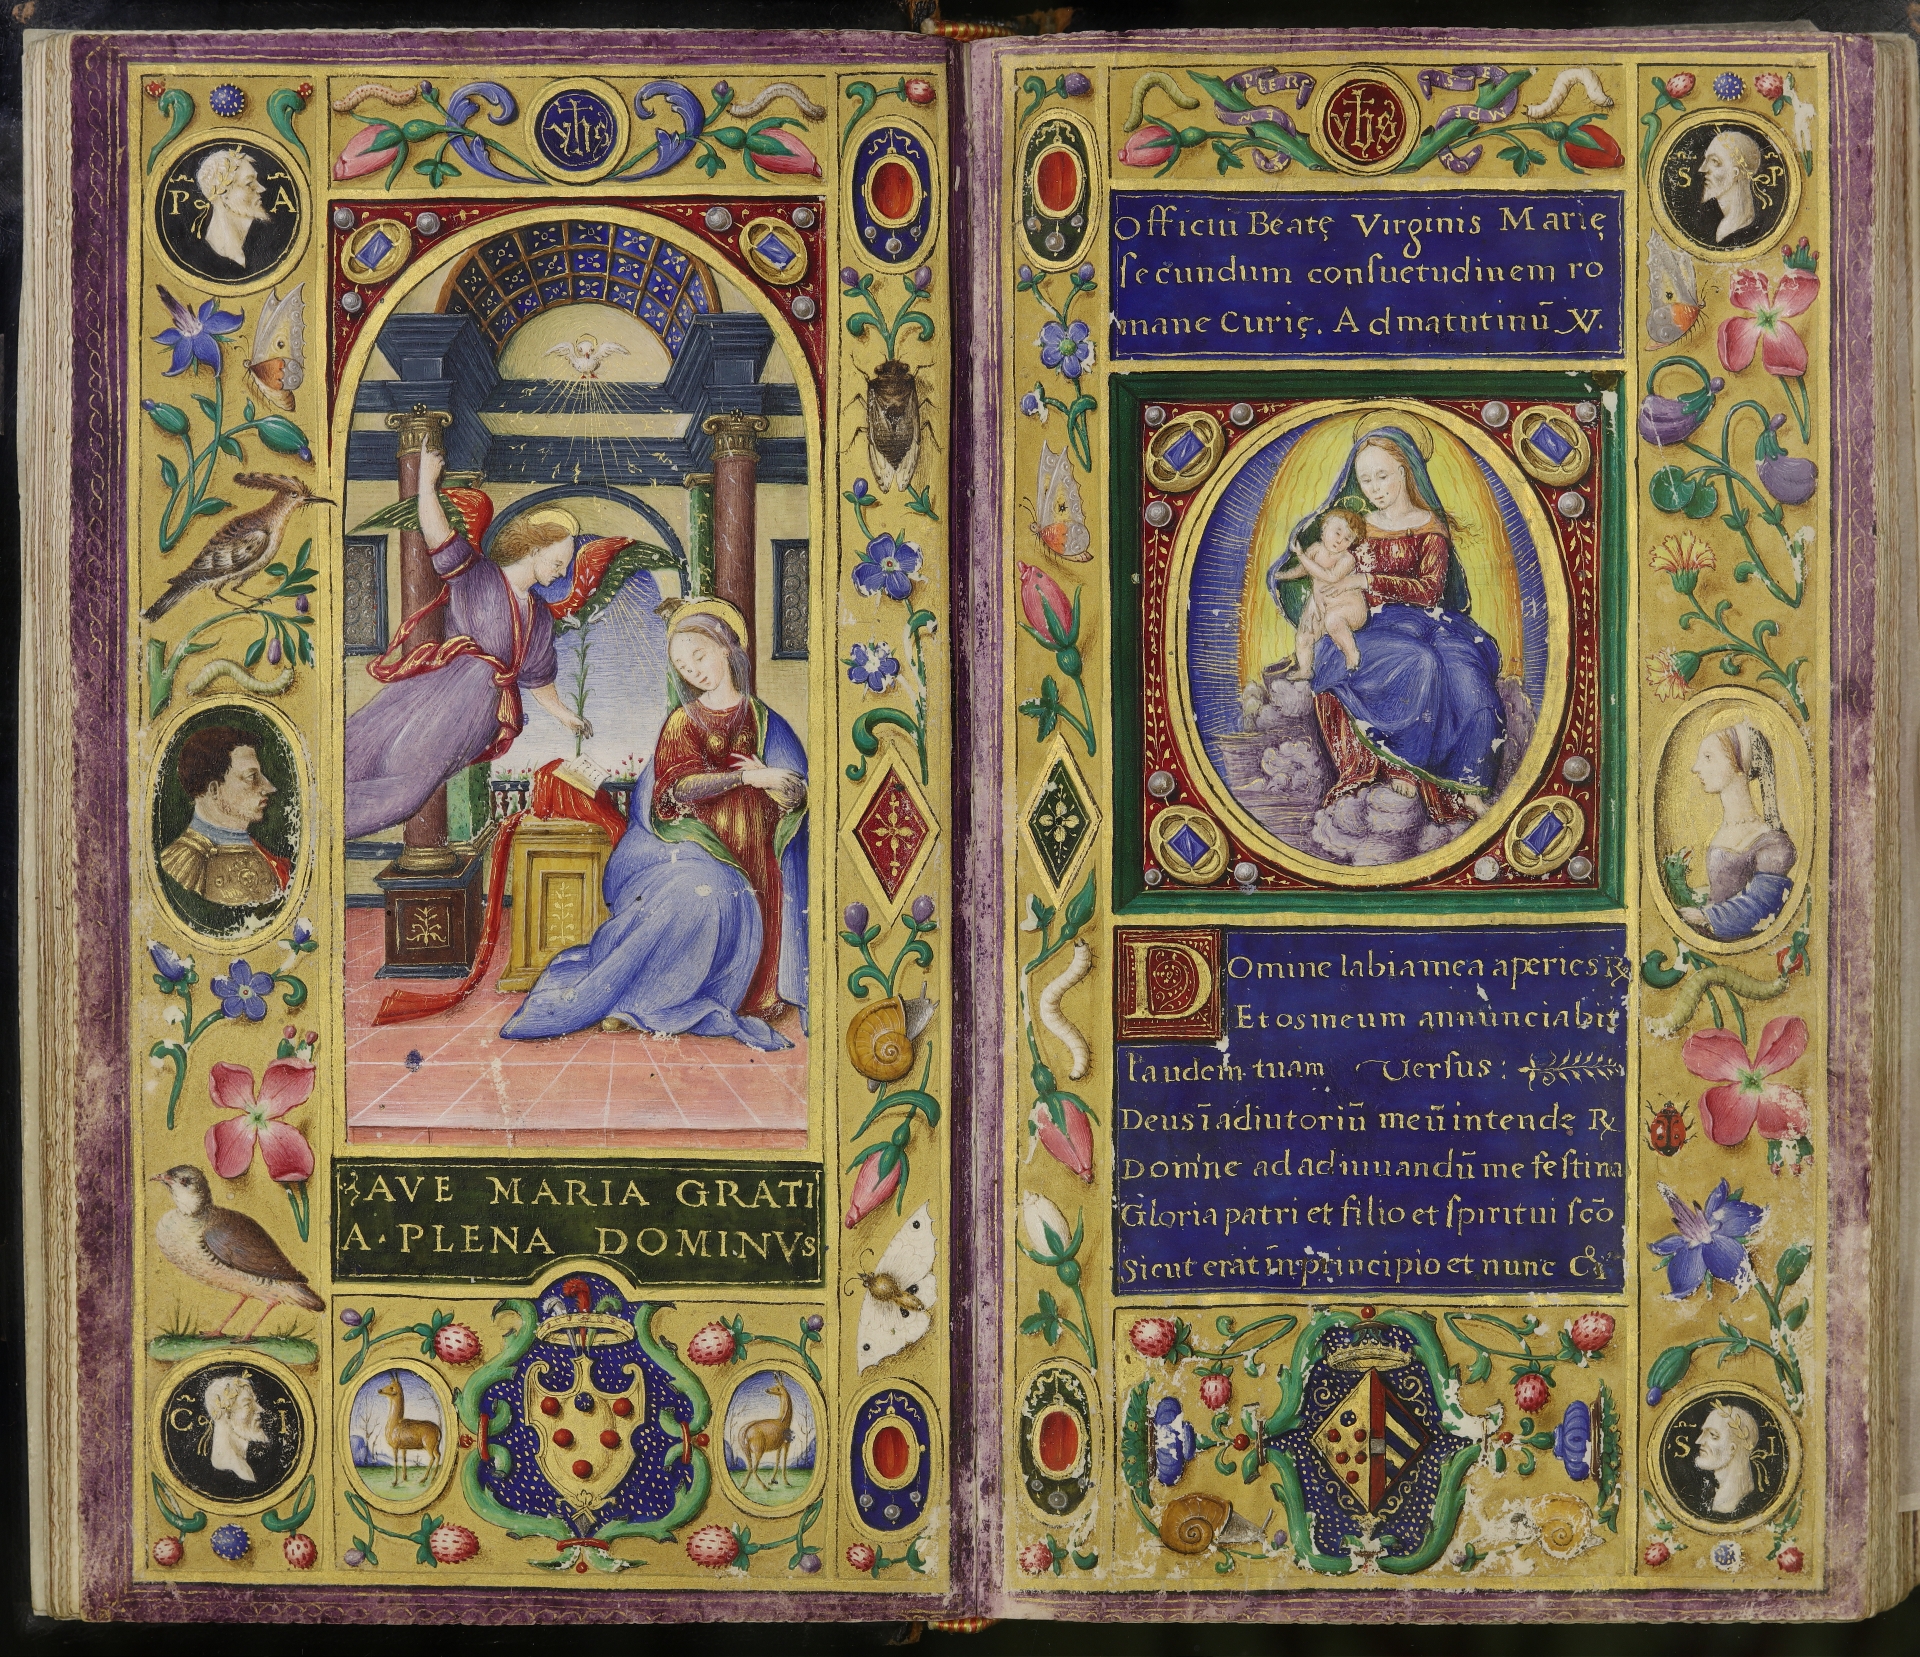 yhs
P A
C I
AVE MARIA GRATI
A · PLENA DOMINVS
yhs
PIER
EN
SE
MPE
S P
Officiū Beatę Virginis Marię
ſecundum conſuetudinem ro
mane Curię. Ad matutinū V.
Domine labia mea aperies ℞
Et os meum annunciabit
laudem tuam Verſus:
Deus ī adiutoriū meū intende ℞
Domine ad adiuuandū me feſtina
Gloria patri et filio et ſpiritui ſcō
Sicut erat in principio et nunc
S I